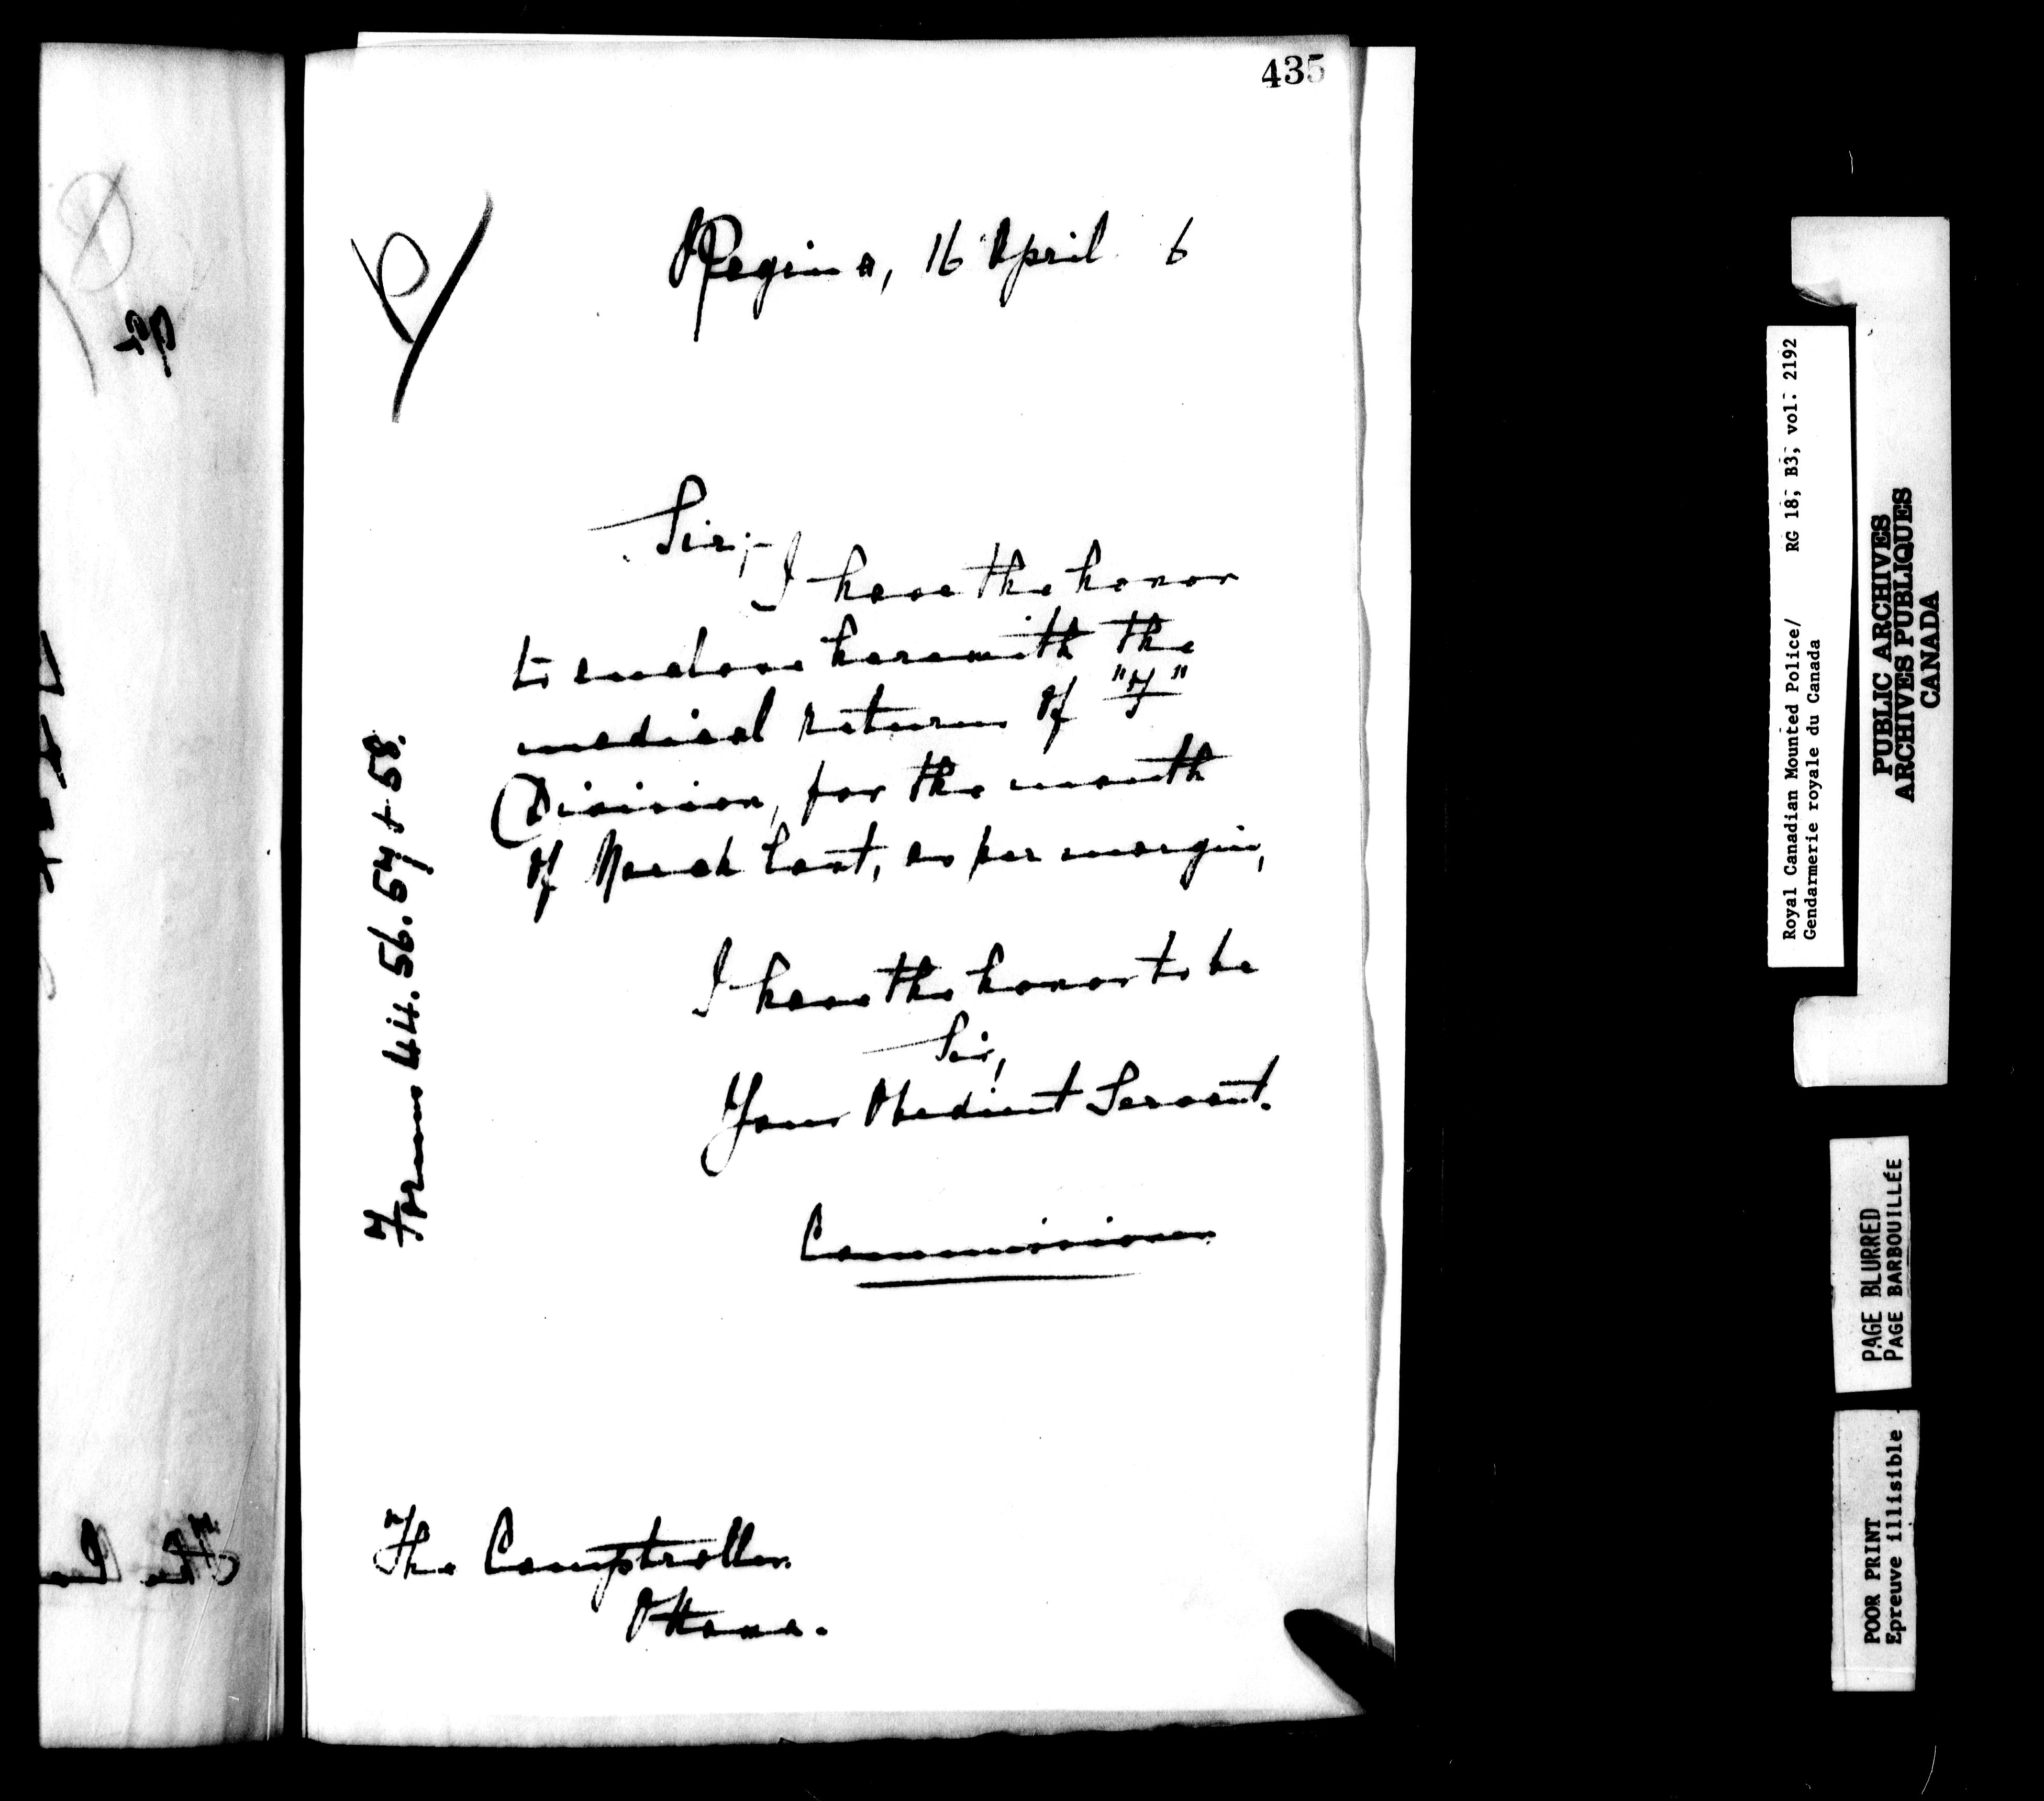 435
Regina, 16 April 6
Sir,-
I have the honor
to enclose herewith the
medical returns of "F"
Division, for the month
of March last, as per margin,
Forms 44. 56. 57 & 58.
I have the honor to be
Sir,
Your Obedient Servant.
Commissioner
The Comptroller.
Ottawa.
Royal Canadian Mounted Police/ RG 18, B3, vol. 2192
Gendarmerie royale du Canada
PUBLIC ARCHIVES
ARCHIVES PUBLIQUES
CANADA
PAGE BLURRED
PAGE BARBOUILLÉE
POOR PRINT
Epreuve illisible